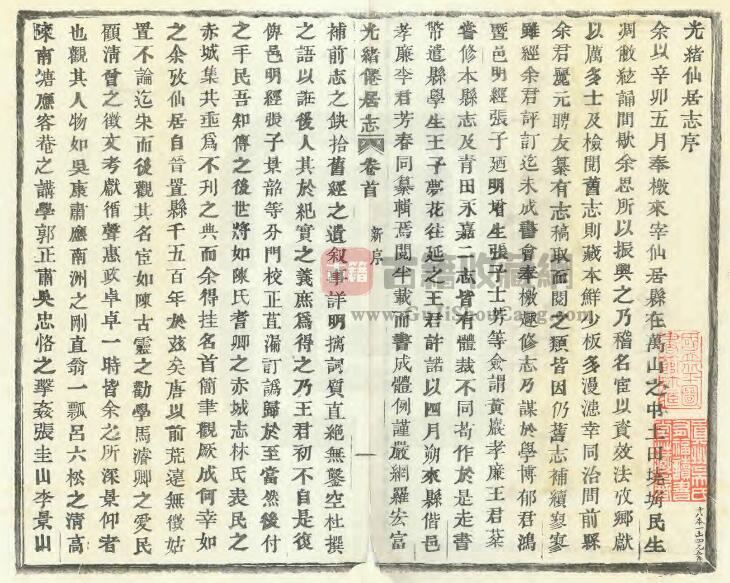 光緒仙居志序
余以辛卯五月奉檄來宰仙居縣在萬山之中土田塉埆民生
凋敝絃誦間歇余思所以振興之乃稽名宦以資效法攷鄉獻
以厲多士及檢閱舊志則藏本鮮少板多漫漶幸同治間前縣
余君麗元聘友纂有志稿取而閱之類皆因仍舊志補續寥寥
雖經余君評訂迄未成書會奉檄趣修志乃謀於學博郁君鴻
暨邑明經張子廼明增生張子士芳等僉謂黃巖孝廉王君棻
嘗修本縣志及青田永嘉二志皆有體裁不同苟作於是走書
幣遣縣學生王子夢花往延之王君許諾以四月朔來縣偕邑
孝廉李君芳春同纂輯焉閱半載而書成體例謹嚴網羅宏富
光緒僊居志 卷首 新序 一
補前志之缺拾舊經之遺叙事詳明摛詞質直絶無鑿空杜撰
之語以誑後人其於紀實之義庶為得之乃王君初不自是復
俾邑明經張子景韶等分門校正苴漏訂譌歸於至當然後付
之手民吾知傳之後世將如陳氏耆卿之赤城志林氏表民之
赤城集共垂為不刊之典而余得挂名首簡聿觀厥成何幸如
之余攷仙居自晉置縣千五百年於茲矣唐以前荒遠無徵姑
置不論迄宋而後觀其名宦如陳古靈之勸學馬濬卿之愛民
顧清曾之徵文考獻循聲惠政卓卓一時皆余之所深景仰者
也觀其人物如吳康肅應南洲之剛直翁一瓢呂六松之清高
陳南塘應客菴之講學郭正肅吳忠恪之擊姦張圭山李景山
古籍收藏網
www.GuJiShouCang.com